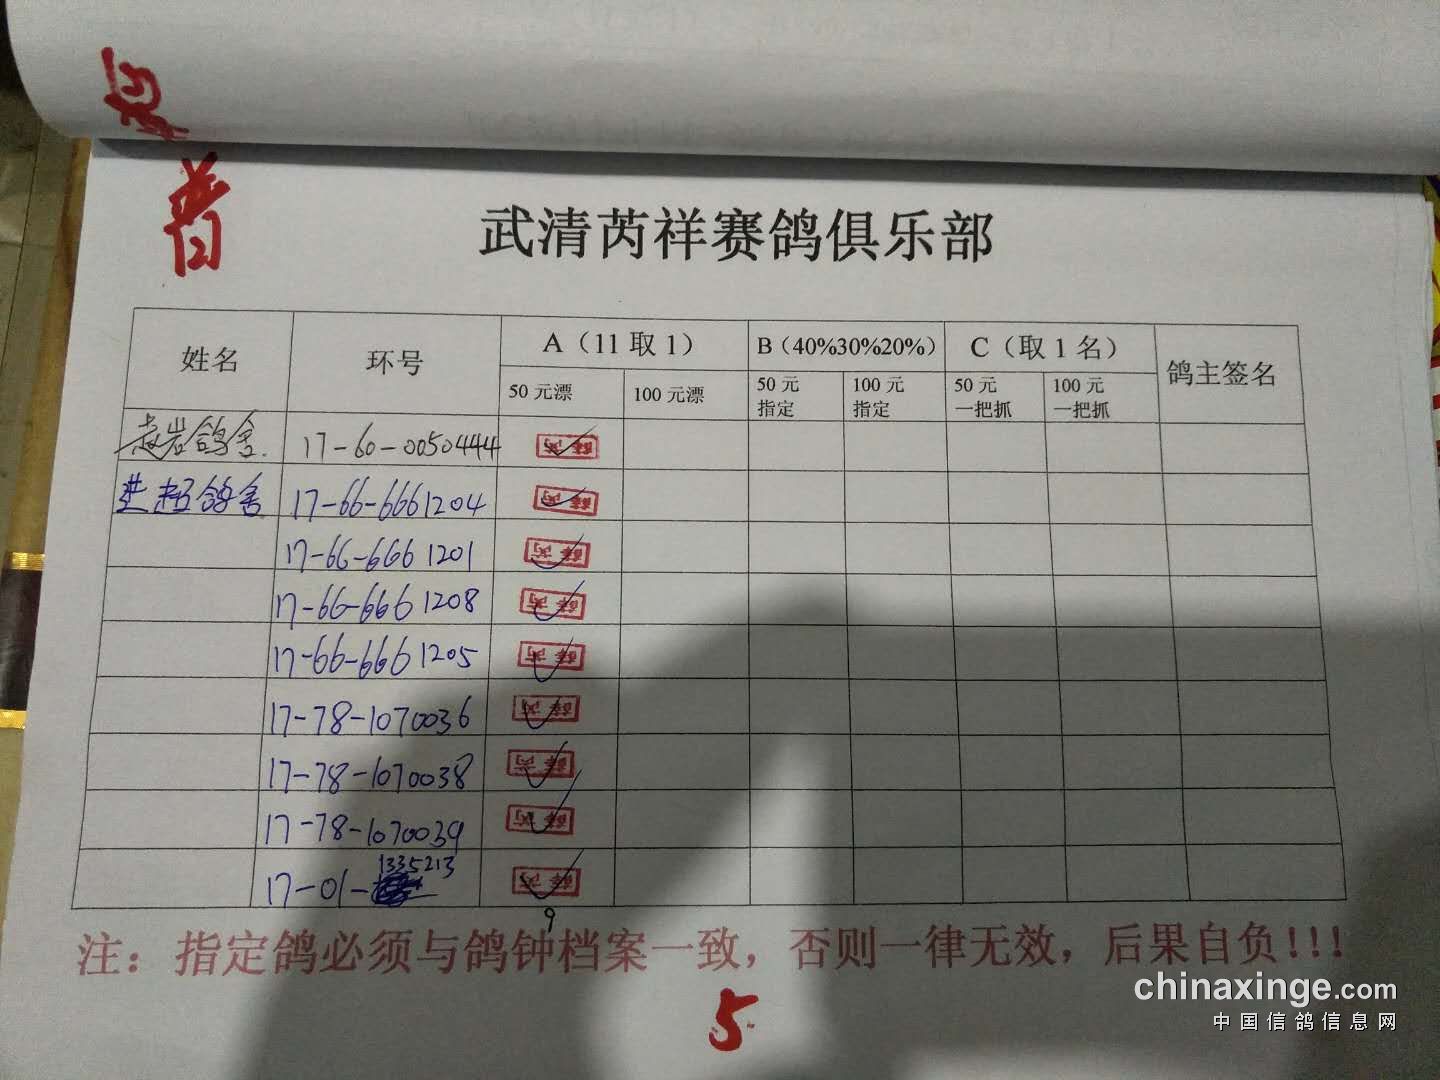 普
武清芮祥赛鸽俱乐部
姓名 环号 A（11 取 1） B（40%30%20%） C（取 1 名） 鸽主签名
50 元漂 100 元漂 50 元 指定 100 元 指定 50 元 一把抓 100 元 一把抓
赵岩鸽舍. 17-60-0050444
鸽舍 17-66-6661204
17-66-6661201
17-66-6661208
17-66-6661205
17-78-1070036
17-78-1070038
17-78-1070039
17-01-1335213
9
注：指定鸽必须与鸽钟档案一致，否则一律无效，后果自负!!!
5
chinaxinge.com
中国信鸽信息网